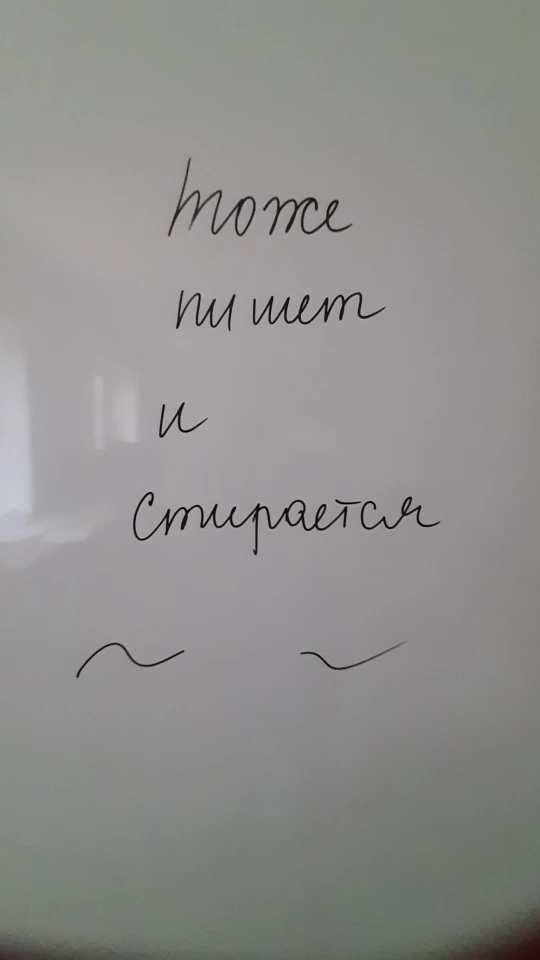 тоже
пишет
и
стирается